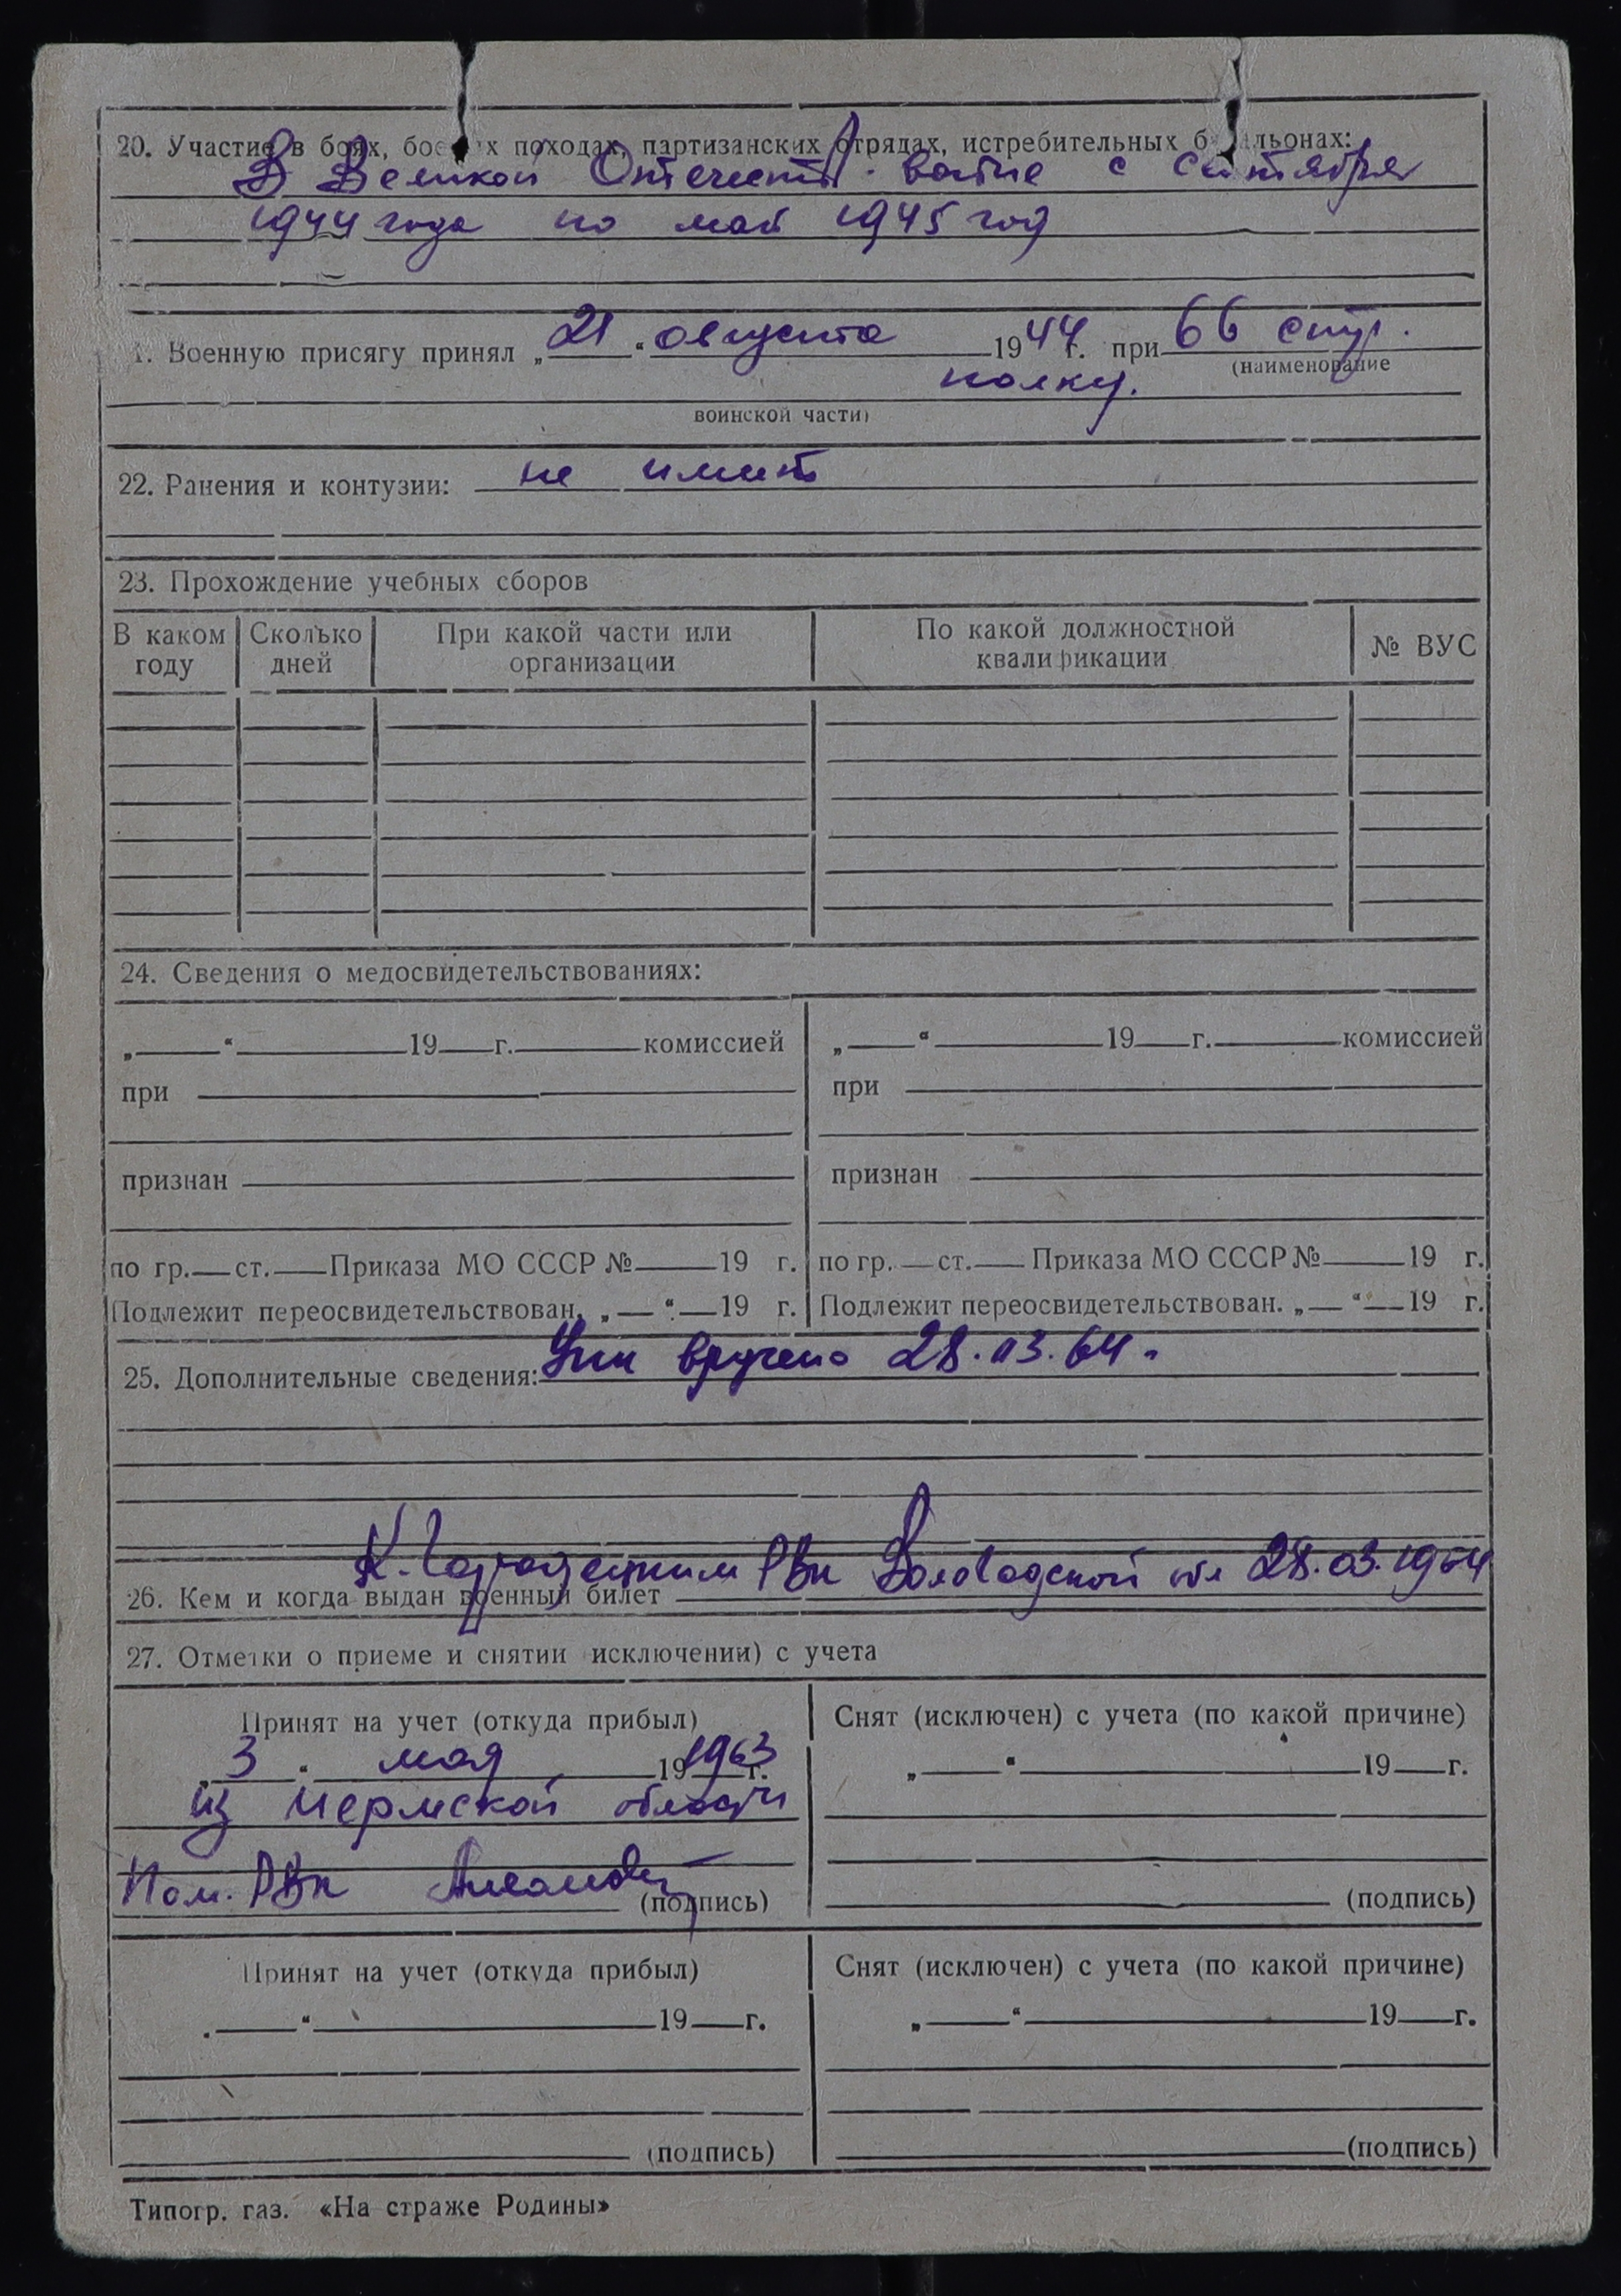 20. Участие в боях, бое х походах, партизанских отрядах, истребительных б льонах:
В Великой Отечеств. войне с сентября
1944 года по май 1945 год
1. Военную присягу принял „21“ августа 1944 г. при 66 стр.
(наименование
полку.
воинской части)
22. Ранения и контузии: не имеет
23. Прохождение учебных сборов
В каком году | Сколько дней | При какой части или организации | По какой должностной квалификации | № ВУС
24. Сведения о медосвидетельствованиях:
„ “ 19 г. комиссией | „ “ 19 г. комиссией
при | при
признан | признан
по гр. ст. Приказа МО СССР № 19 г. | по гр. ст. Приказа МО СССР № 19 г.
Подлежит переосвидетельствован. „ “ 19 г. | Подлежит переосвидетельствован. „ “ 19 г.
25. Дополнительные сведения: вручено 28.03.64.
К. Городецким РВК Вологодской обл 28.03.1964
26. Кем и когда выдан военный билет
27. Отметки о приеме и снятии исключении) с учета
Принят на учет (откуда прибыл) | Снят (исключен) с учета (по какой причине)
„3“ мая 19 1963 г. | „ “ 19 г.
из Пермской области
Пом. РВК (подпись) | (подпись)
Принят на учет (откуда прибыл) | Снят (исключен) с учета (по какой причине)
„ “ 19 г. | „ “ 19 г.
(подпись) | (подпись)
Типогр. газ. «На страже Родины»